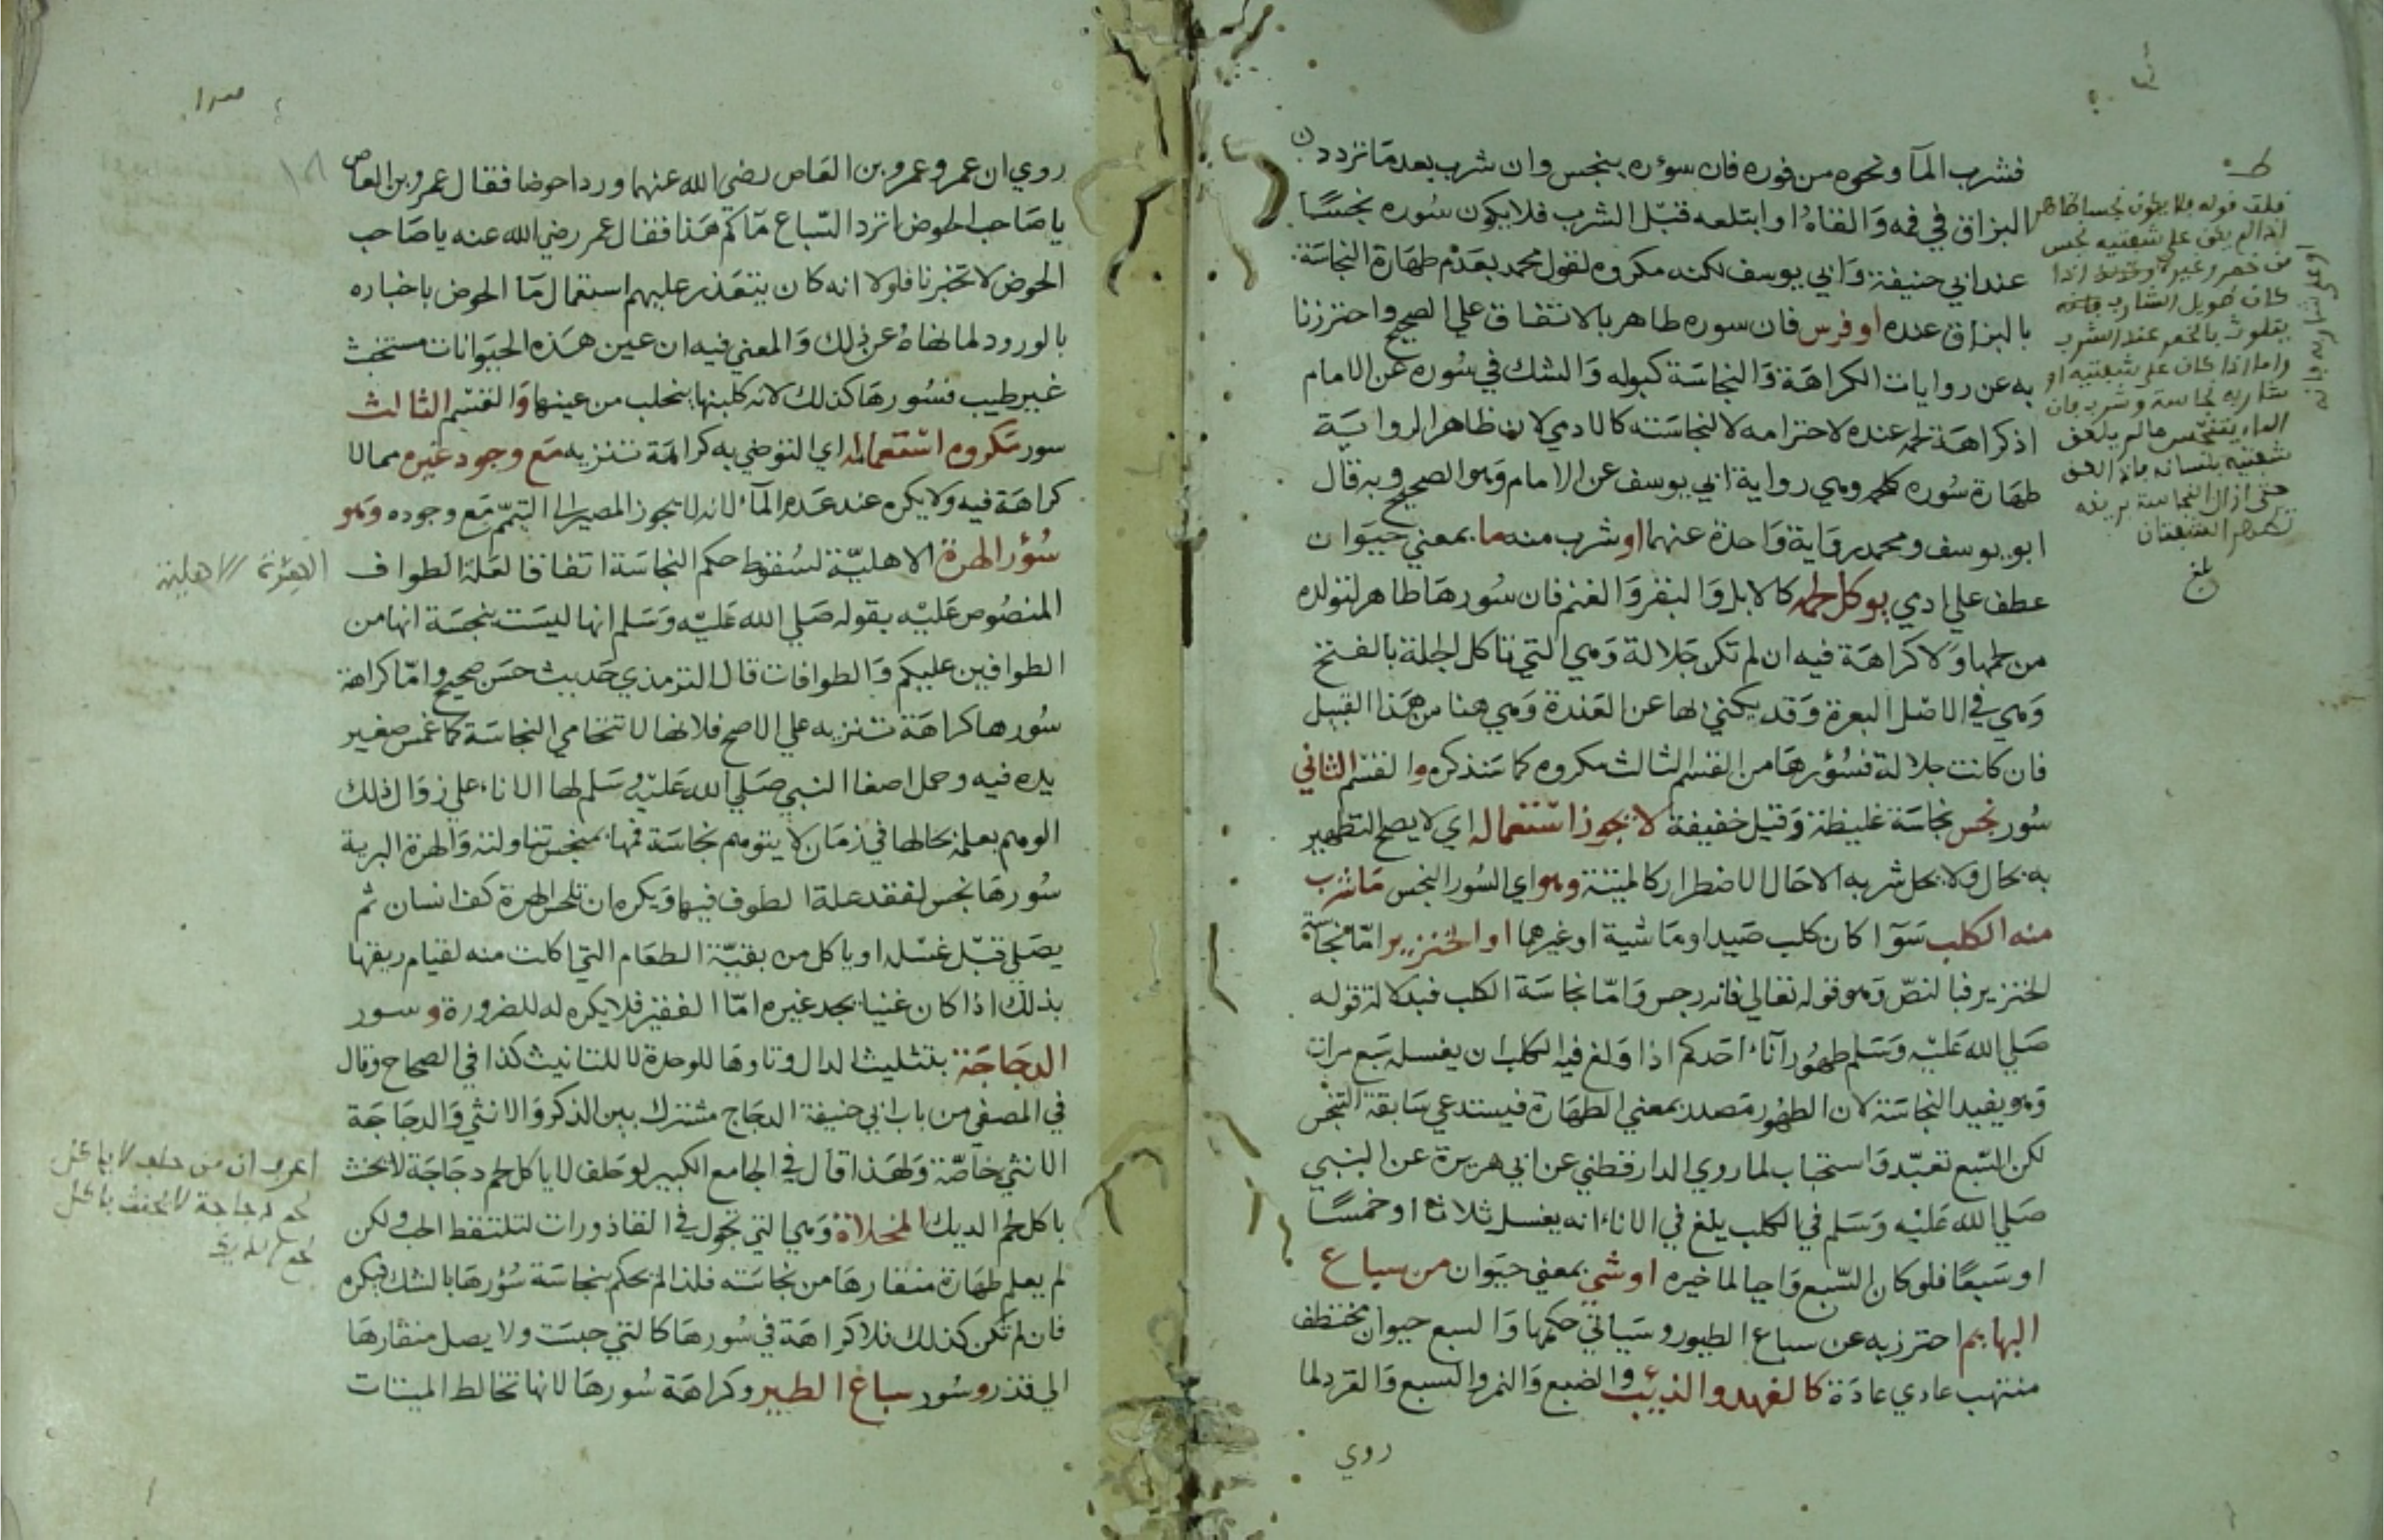 فشرب المآ ونحوه من فوره فان سوءره ينجس وان شرب بعد ما تردد
البزاق في فمه والقاهُ او ابتلعه قبل الشرب فلا يكون سُوره نجسًا
عند ابي حنيفة وابي يوسف لكنه مكروه لقول محمد بعدم طهارة النجاسة
بالبزاق عنده او فرس فان سوره طاهر بالاتفاق علي الصحيح واحترزنا
به عن روايات الكراهة والنجاسة كبوله والشك في سُوره عن الامام
اذ كراهة لحمه عنده لاحترامه لا لنجاسته كالادمي لان ظاهر الرواية
طهارة سُوره كلحمه وهي رواية ابي يوسف عن الامام وهو الصحيح وبه قال
ابو يوسف ومحمد رواية واحدة عنهما او شرب منه ما بمعني حيوان
عطف علي ادمي يوكل لحمه كالابل والبقر والغنم فان سُورها طاهر لتولده
من لحمها ولا كراهة فيه ان لم تكن جلالة وهي التي تاكل الجلة بالفتح
وهي في الاصل البعرة وقد يكني بها عن العذرة وهي هنا من هذا القبيل
فان كانت جلالة فسُؤرها من القسم الثالث مكروه كما سنذكره والقسم الثاني
سُور نجس نجاسة غليظة وقيل خفيفة لا يجوز استعماله اي لا يصح التطهير
به بحال ولا يحل شربه الا حال الاضطرار كالميتة وهو اي السُور النجس ما شرب
منه الكلب سوآ كان كلب صيد او ماشية او غيرهما او الخنزير اما نجاسة
الخنزير فبالنص وهو قوله تعالي فانه رجس واما نجاسة الكلب فبدلالة قوله
صلي الله عليه وسلم طهُور آناء احدكم اذا ولغ فيه الكلب ان يغسله سبع مرات
وهو يفيد النجاسة لان الطهُور مصدر بمعني الطهارة فيستدعي سابقة التنجس
لكن السبع تعبد واستحباب لما روي الدارقطني عن ابي هريرة عن النبي
صلي الله عليه وسلم في الكلب يلغ في الاناء انه يغسل ثلاثا او خمسًا
او سبعًا فلو كان السبع واجبا لما خيره او شي بمعني حيوان من سباع
البهايم احترز به عن سباع الطيور وسياتي حكمها والسبع حيوان مختطف
منتهب عادي عادة كالفهد والذيب والضبع والنمر والسبع والقرد لما
روي
قلت قوله فلا يكون نجسا ظاهر
اذا لم يكن علي شفتيه نجس
من خمر وغيره
كان طويل الشارب
يتلوث بالخمر عند الشرب
واما اذا كان علي شفتيه او
شاربه نجاسة وشرب فان
الماء يتنجس ما لم يلعق
شفتيه بلسانه
حتي ازال النجاسة بريقه
تطهر الشفتان
بلغ
١٨
روي ان عمر وعمرو بن العاص رضي الله عنهما وردا حوضا فقال عمرو بن العاص
يا صاحب الحوض اترد السباع مآكم هذا فقال عمر رضي الله عنه يا صاحب
الحوض لا تخبرنا فلولا انه كان يتعذر عليهم استعمال مآ الحوض باخباره
بالورود لما نهاه عن ذلك والمعني فيه ان عين هذه الحيوانات مستخبث
غير طيب فسُورها كذلك لانه كلبنها يتحلب من عينها والقسم الثالث
سور مكروه استعماله اي التوضي به كراهة تنزيه مع وجود غيره مما لا
كراهة فيه ولا يكره عند عدم المآء لانه لا يجوز المصير الي التيمم مع وجوده وهو
سُؤر الهرة الاهلية لسُقوط حكم النجاسة اتفاقا لعلة الطواف
المنصُوص عليه بقوله صلي الله عليه وسلم انها ليست بنجسة انها من
الطوافين عليكم والطوافات قال الترمذي حديث حسن صحيح واما كراهة
سُورها كراهة تنزيه علي الاصح فلانها لا تتحامي النجاسة كما غمس صغير
يده فيه وحمل اصغا النبي صلي الله عليه وسلم لها الاناء علي زوال ذلك
الوهم بعلمه بحالها في زمان لا يتوهم نجاسة فمها بمنجس تناولته والهرة البرية
سُورها نجس لفقد علة الطوف فيها ويكره ان تلحس الهرة كف انسان ثم
يصلي قبل غسله او ياكل من بقية الطعام التي اكلت منه لقيام ريقها
بذلك اذا كان غنيا يجد غيره اما الفقير فلا يكره له للضرورة وسور
الدجاجة بتثليث الدال وتاوها للوحدة لا للتانيث كذا في الصحاح وقال
في المصفي من باب ابي حنيفة الدجاج مشترك بين الذكر والانثي والدجاجة
الانثي خاصة ولهذا قال في الجامع الكبير لو حلف لا ياكل لحم دجاجة لا يحنث
باكل لحم الديك المخلاة وهي التي تجول في القاذورات لتلتقط الحب ولكن
لم يعلم طهارة منقارها من نجاسته فلذا لم يحكم بنجاسة سُؤرها بالشك فيكره
فان لم تكن كذلك فلا كراهة في سُورها كالتي حبست ولا يصل منقارها
الي قذر وسُور سباع الطير وكراهة سُورها لانها تخالط الميتات
الهرة الاهلية
اعرف ان من حلف لا ياكل
لحم دجاجة لا يحنث باكل
لحم الديك